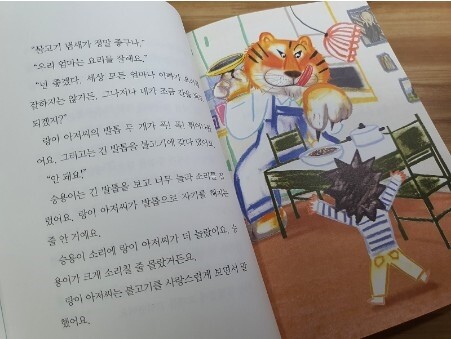 "불고기 냄새가 정말 좋구나."
"우리 엄마는 요리를 잘해요."
"넌 좋겠다. 세상 모든 엄마나 아빠가 요리를
잘하지는 않거든. 그나저나 내가 조금 맛을
되겠지?"
랑이 아저씨의 발톱 두 개가 쑥! 쑥! 튀어
어요. 그리고는 긴 발톱을 불고기에 갖다 댔어요.
"안 돼요!"
승용이는 긴 발톱을 보고 너무 놀라 소리
렀어요. 랑이 아저씨가 발톱으로 자기를
줄 안 거예요.
승용이 소리에 랑이 아저씨가 더 놀랐어요. 승
용이가 크게 소리칠 줄 몰랐거든요.
랑이 아저씨는 불고기를 사랑스럽게 보면서 말
했어요.